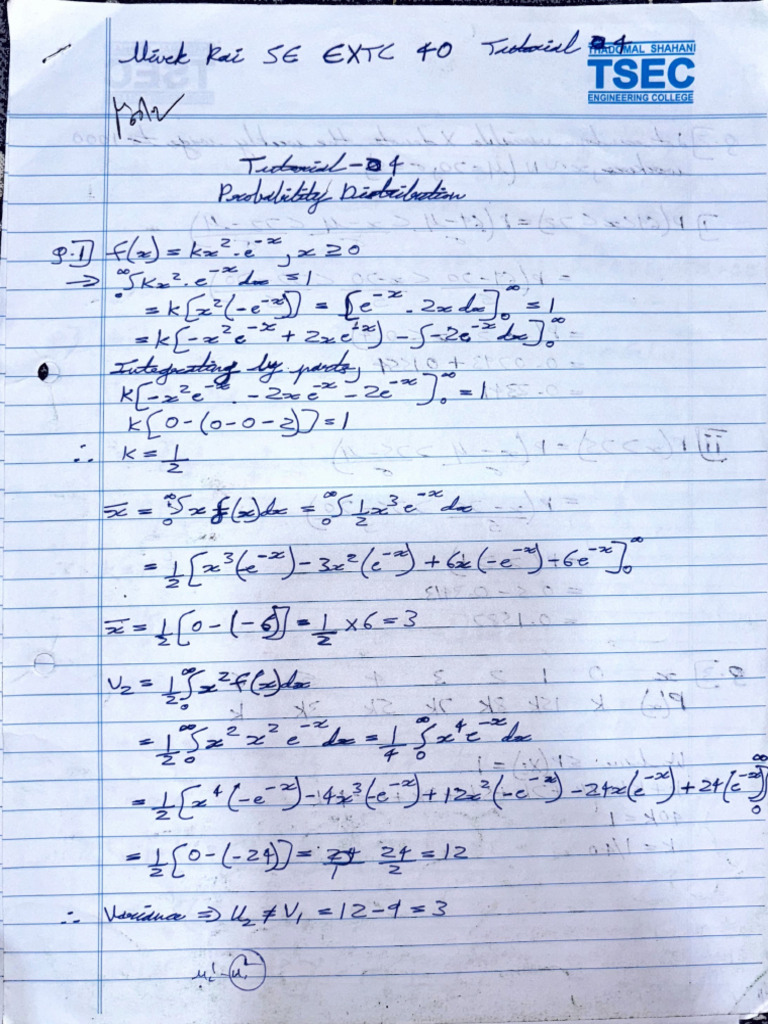 Vivek Rai SE EXTC 40 Tutorial 4
THADOMAL SHAHANI
TSEC
ENGINEERING COLLEGE
Tutorial - 4
Probability Distribution
Q.1] f(x) = kx² · e⁻ˣ, x ≥ 0
→ ₀^∞∫ kx² · e⁻ˣ dx = 1
= k[x²(-e⁻ˣ)] = ∫[e⁻ˣ · 2x dx]₀^∞ = 1
= k[-x²e⁻ˣ + 2xe⁻ˣ) - ∫-2e⁻ˣ dx]₀^∞
Integrating by parts,
k[-x²e⁻ˣ - 2xe⁻ˣ - 2e⁻ˣ]₀^∞ = 1
k[0-(0-0-2)] = 1
∴ k = 1/2
x̄ = ₀^∞∫ x f(x)dx = ₀^∞∫ 1/2 x³ e⁻ˣ dx
= 1/2 [x³(-e⁻ˣ) - 3x²(e⁻ˣ) + 6x(-e⁻ˣ) - 6e⁻ˣ]₀^∞
x̄ = 1/2 [0-(-6)] = 1/2 × 6 = 3
V₂ = 1/2 ₀^∞∫ x² f(x)dx
= 1/2 ₀^∞∫ x² x² e⁻ˣ dx = 1/4 ₀^∞∫ x⁴ e⁻ˣ dx
= 1/2 [x⁴(-e⁻ˣ) - 4x³(-e⁻ˣ) + 12x²(-e⁻ˣ) - 24x(e⁻ˣ) + 24(e⁻ˣ)]₀^∞
= 1/2 [0-(-24)] = 24/2 = 12
∴ Variance ⇒ U₂ ≠ V₁ = 12 - 9 = 3
μ₂' - μ₁'²